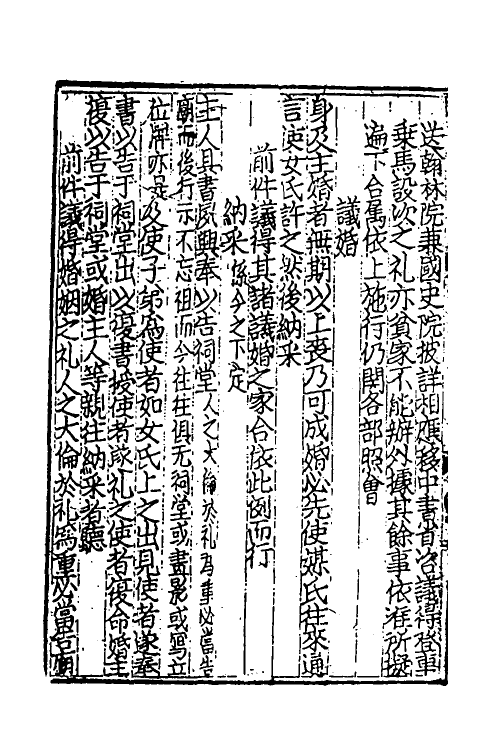 送翰林院兼國史院披詳相應移中書省咨議得登車
乘馬設次之礼亦貧家不能辦外據其餘事依准所擬
遍下合属依上施行仍関各部照會
議婚
身及主婚者無期以上喪乃可成婚必先使媒氏往来通
言使女氏許之然後納采
前件議得其諸議婚之家合依此例而行
納采係今之下定
主人具書夙興奉以告祠堂人之大倫於礼為重必當告
廟而後行示不忘祖而今往往俱无祠堂或畫影或寫立
位牌亦是及使子弟為使者如女氏女氏主人出見使者遂奉
書以告于祠堂出以復書授使者遂礼之使者復命婚主
復以告于祠堂或婚主人等親往納采者聽
前件議得婚姻之礼人之大倫於礼為重必當告廟